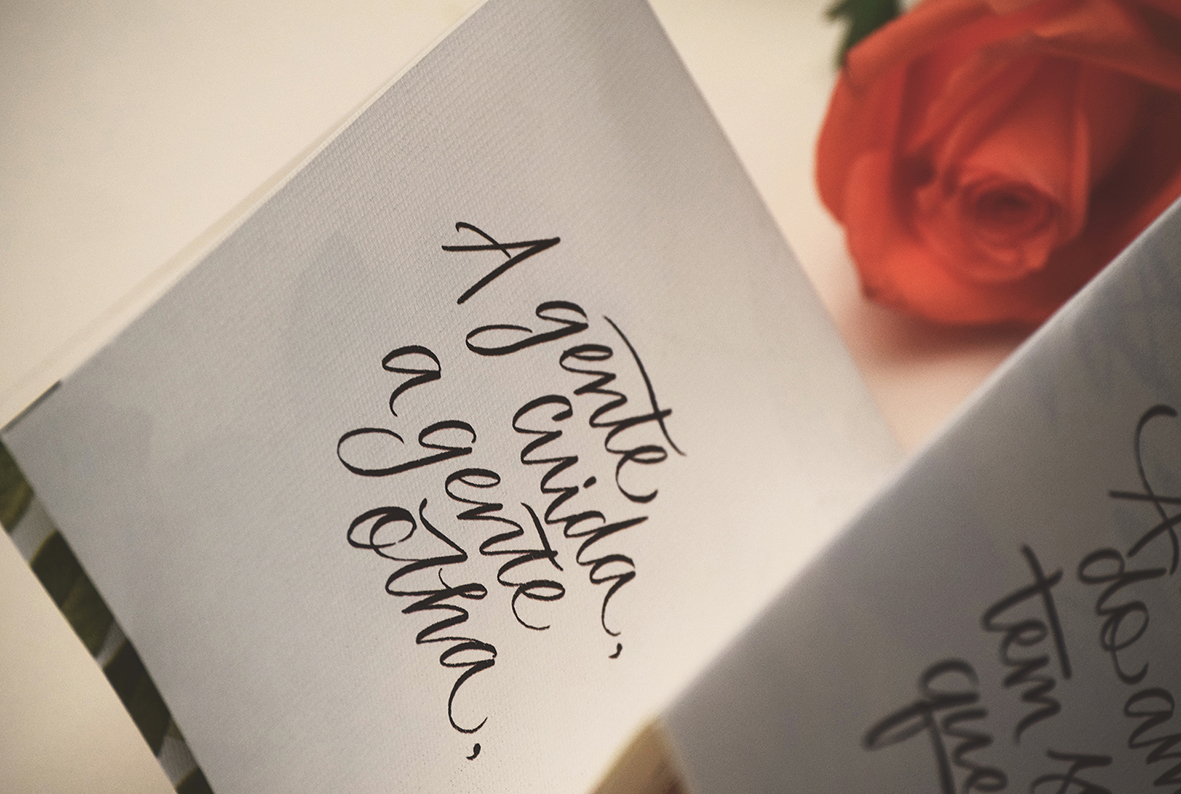 A gente
cuida,
a gente
olha,
A
do am
tem
que